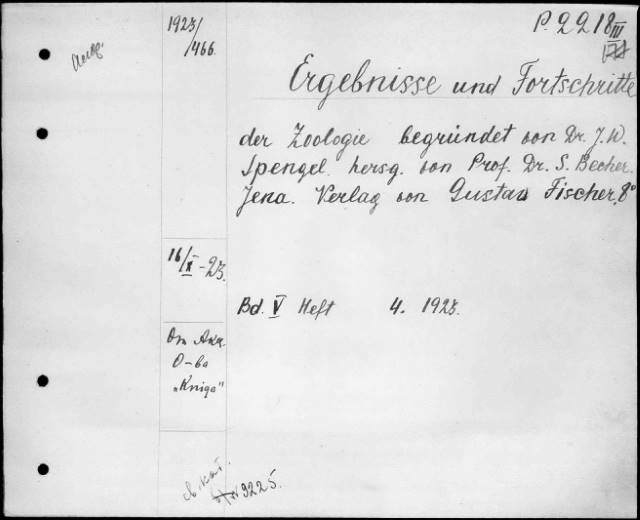 1923/
/466.
P. 2218 III
Ergebnisse und Fortschritte
der Zoologie begründet von Dr. J. W.
Spengel. hersg. von Prof. Dr. S. Becher.
Jena. Verlag von Gustav Fischer. 8°
16/X - 23.
Bd. V Heft 4. 1923.
От Акц.
О-ва
„Kniga"
9225.